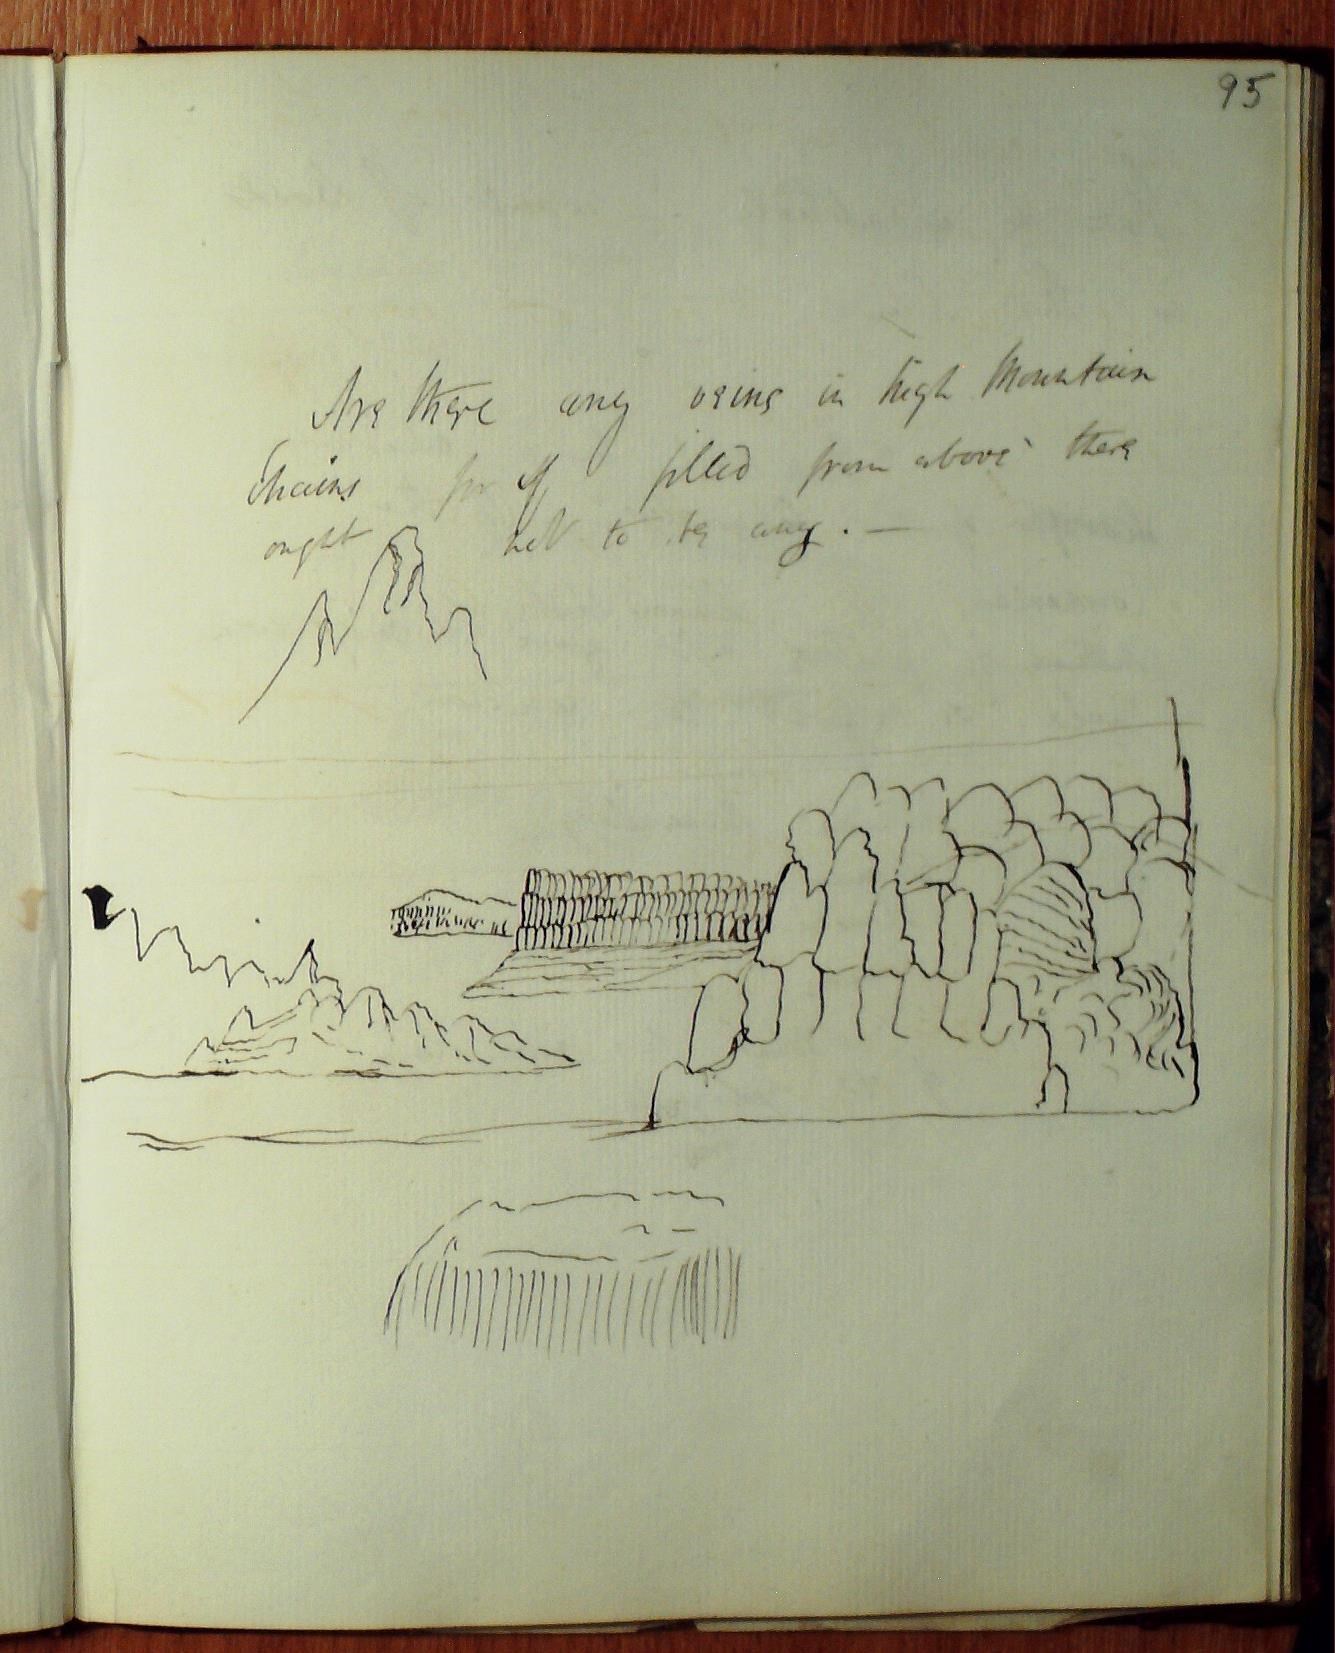 95
Are there any veins in high Mountain
Chains for if filled from above there
ought not to be any. —